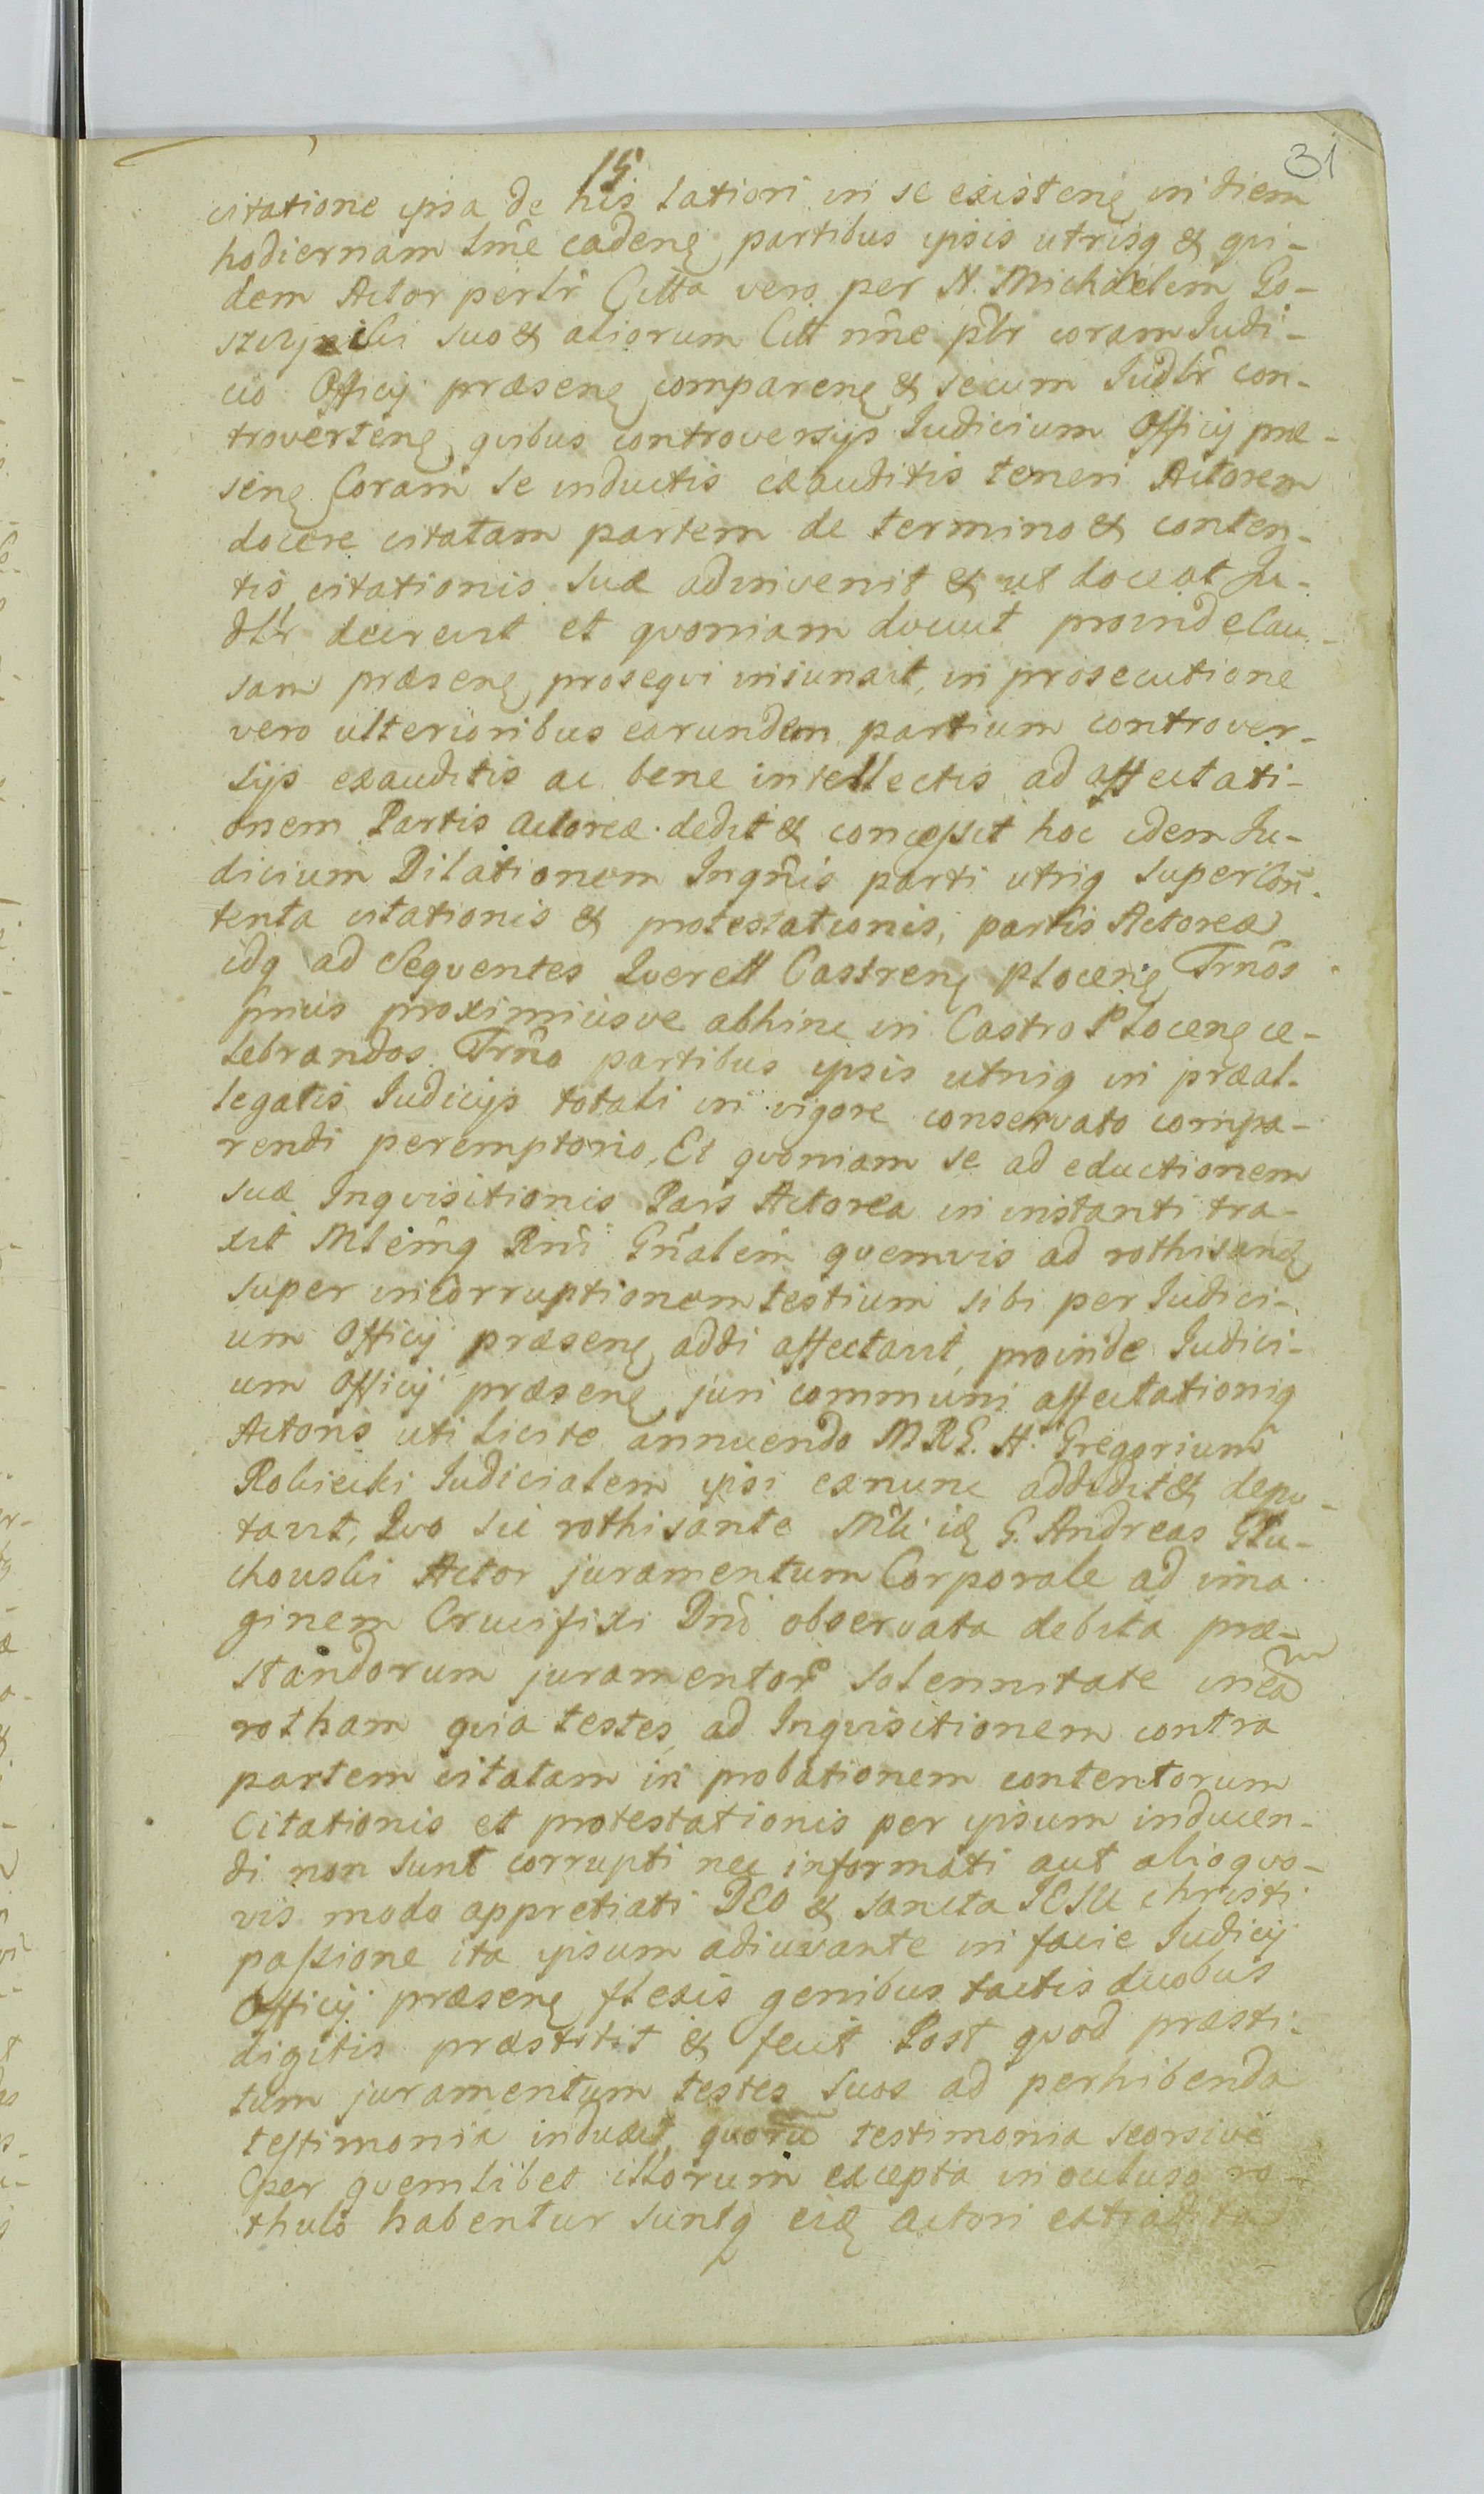 31
15
citatione ipsa de his latiori in se existenȩ in diem
hodiernam lm̃e cadenȩ partibus ipsis utrisq & qvi-
dem Actor perlr̃ Citta vero per N. Michaelem Go-
suo & aliorum Citt nñe p̃lr coram Judi-
cio Officij præsenȩ comparenȩ & secum Judlr̃ con-
trovertenȩ, qvibus controversijs Judicium Officij præ-
senȩ Coram se inductis exauditis teneri Actorem
docere citatam partem de termino & conten-
tis citationis suæ adinvenit & ut doceat Ju-
dlr̃ decrevit et qvoniam docuit proinde Cau-
sam præsenȩ proseqvi iniunxit, in prosecutione
vero ulterioribus earundem partium controver-
sijs exauditis ac bene intellectis ad affectati-
onem Partis Actoreæ dedit & concessit hoc idem Ju-
dicium Dilationem Inqñis parti utriq super Con-
tenta citationis & protestationis, partis Actoreæ
idq ad Seqventes Qverell Castrenȩ Plocenȩ Trños
prius proximiusve abhinc in Castro Plocenȩ ce-
lebrandos. Trño partibus ipsis utriq in præal-
legatis Judicijs totali in vigore conservato compa-
rendi peremptorio, Et qvoniam se ad eductionem
suæ Inqvisitionis Pars Actorea in instanti tra-
xit Mlem̃q Rñi Gñalem qvemvis ad rothisandȩ
super incorruptionem testium sibi per Judici-
um Officij præsenȩ addi affectavit, proinde Judici-
um Officij præsenȩ juri communi affectationiq
Actoris uti licite annuendo MRG. H. Gregorium
Rokicki Judicialem ipsi exnunc addidit & depu-
tavit, Qvo sic rothisante Mlĩ idȩ G. Andreas Glu-
chowski Actor juramentum Corporale ad ima-
ginem Crucifixi Dñi observata debita præ-
standorum juramentor̃ solennitate in eã
rotham qvia testes ad Inqvisitionem contra
partem citatam in probationem contentorum
Citationis et protestationis per ipsum inducen-
di non sunt corrupti nec informati aut alioqvo-
vis modo appretiati DEO & sancta IESU christi
passione ita ipsum adiuvante in facie Judicij
Officij præsenȩ flexis genibus tactis duobus
digitis præstitit & fecit Post qvod præsti-
tum juramentum testes suos ad perhibenda
testimonia induxit, qvorũ testimonia seorsive
per qvemlibet illorum excepta in ocluso ro-
thulo habentur suntq eidȩ Actori extradita